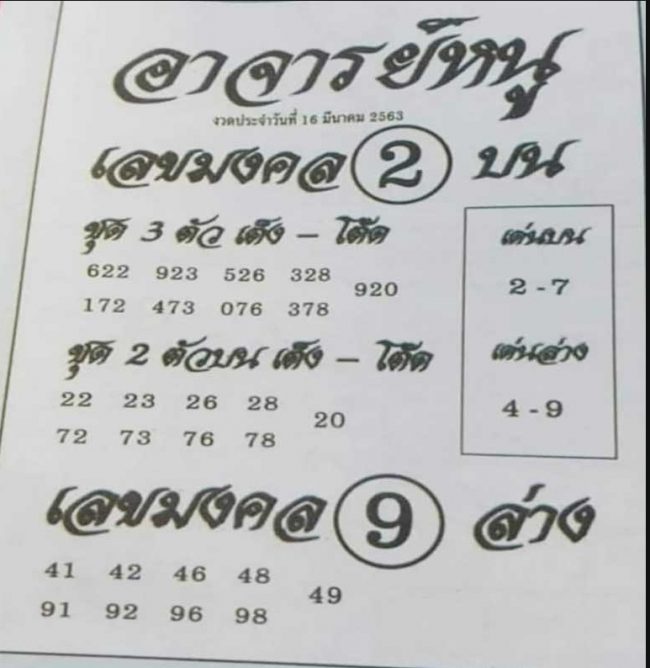 อาจารย์หนู
งวดประจำวันที่ 16 มีนาคม 2563
เลขมงคล 2 บน
ชุด 3 ตัว เต็ง – โต๊ด
622 923 526 328
920
172 473 076 378
เด่นบน
2 - 7
ชุด 2 ตัวบน เต็ง – โต๊ด
22 23 26 28
20
72 73 76 78
เด่นล่าง
4 - 9
เลขมงคล 9 ล่าง
41 42 46 48
49
91 92 96 98